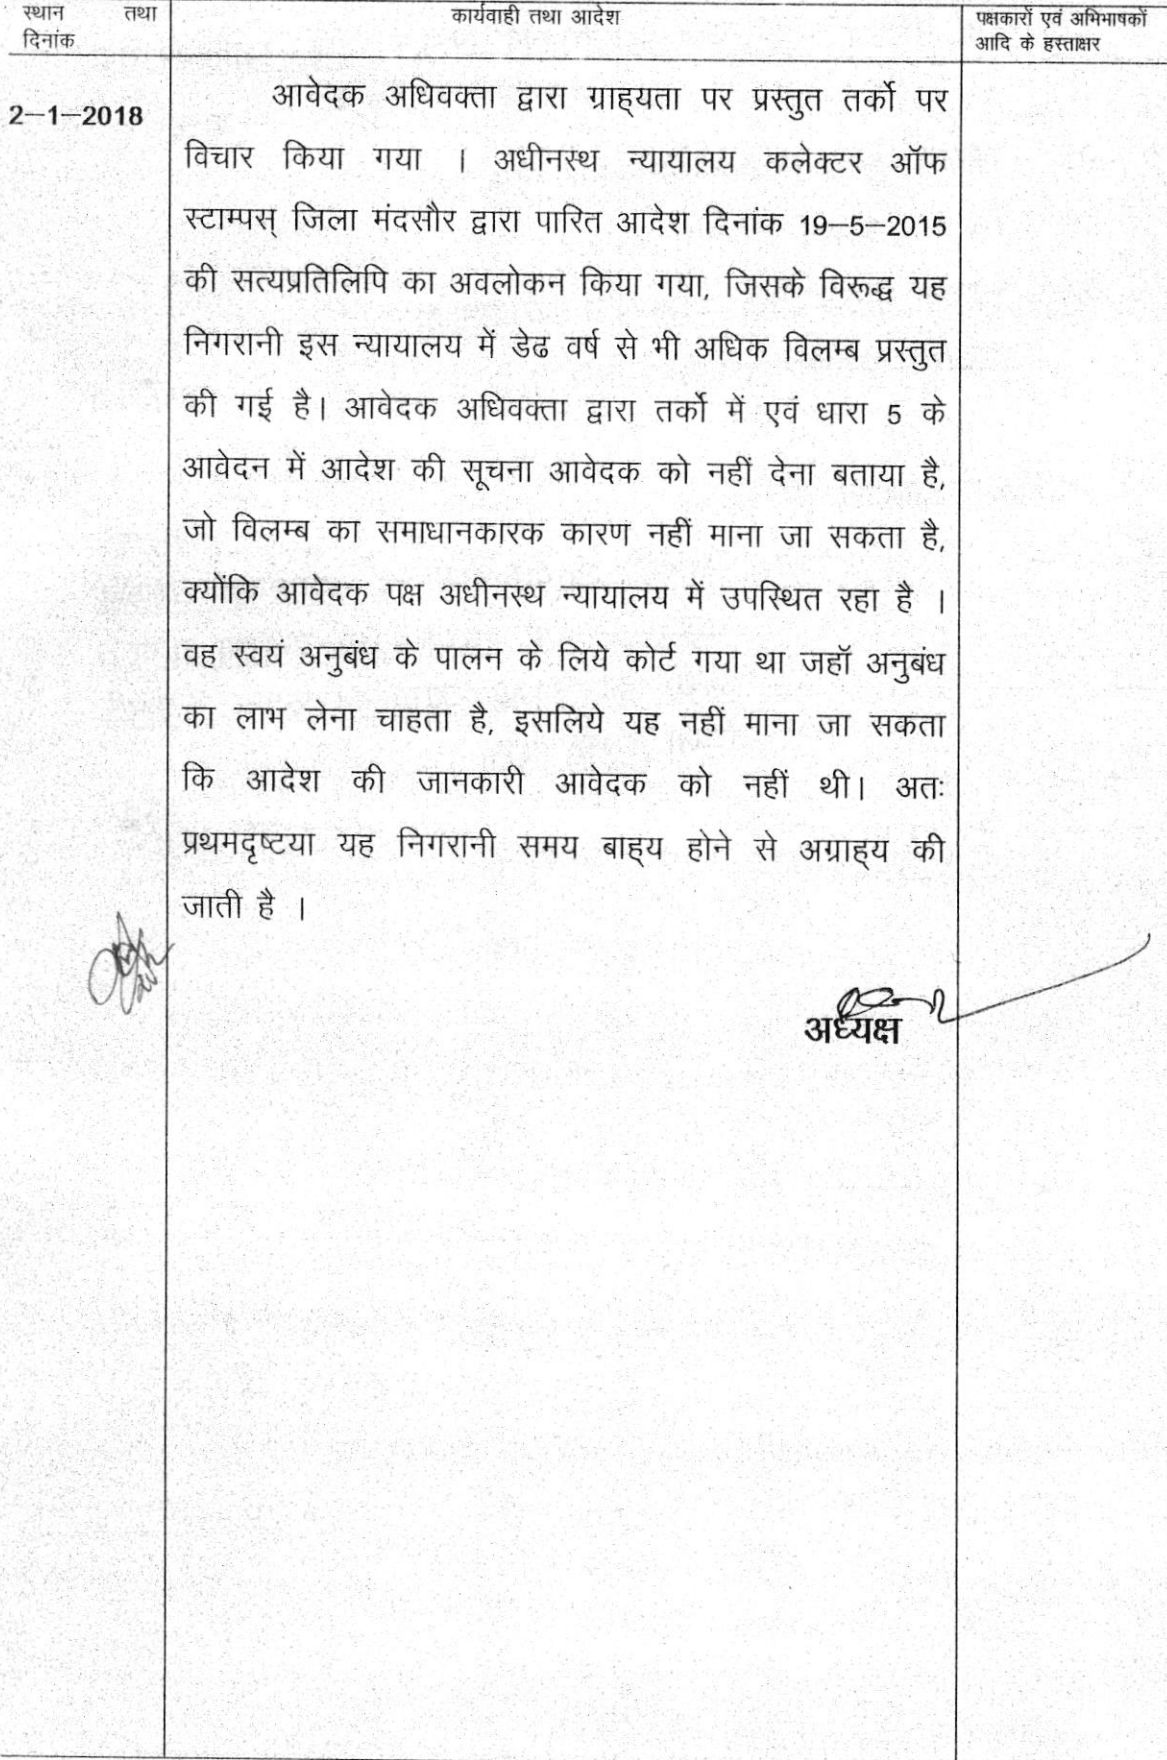 स्थान तथा
दिनांक
कार्यवाही तथा आदेश
पक्षकारों एवं अभिभाषकों
आदि के हस्ताक्षर
2–1–2018
आवेदक अधिवक्ता द्वारा ग्राह्यता पर प्रस्तुत तर्को पर
विचार किया गया । अधीनस्थ न्यायालय कलेक्टर ऑफ
स्टाम्पस् जिला मंदसौर द्वारा पारित आदेश दिनांक 19–5–2015
की सत्यप्रतिलिपि का अवलोकन किया गया, जिसके विरूद्ध यह
निगरानी इस न्यायालय में डेढ वर्ष से भी अधिक विलम्ब प्रस्तुत
की गई है। आवेदक अधिवक्ता द्वारा तर्को में एवं धारा 5 के
आवेदन में आदेश की सूचना आवेदक को नहीं देना बताया है,
जो विलम्ब का समाधानकारक कारण नहीं माना जा सकता है,
क्योंकि आवेदक पक्ष अधीनस्थ न्यायालय में उपस्थित रहा है ।
वह स्वयं अनुबंध के पालन के लिये कोर्ट गया था जहॉ अनुबंध
का लाभ लेना चाहता है, इसलिये यह नहीं माना जा सकता
कि आदेश की जानकारी आवेदक को नहीं थी। अतः
प्रथमदृष्टया यह निगरानी समय बाह्य होने से अग्राह्य की
जाती है ।
अध्यक्ष